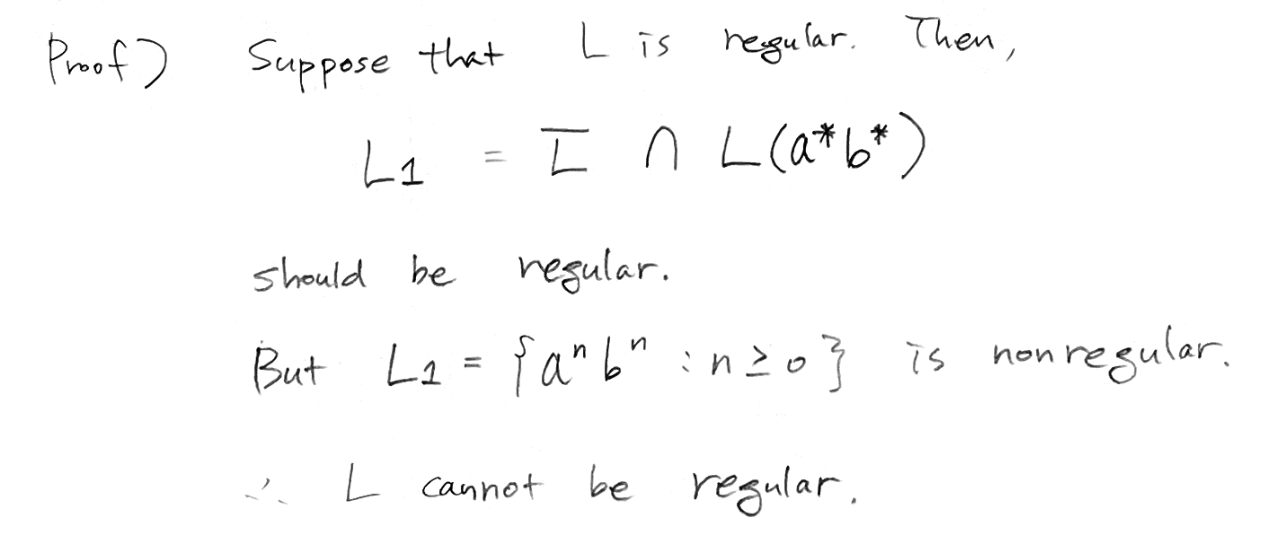 Proof) Suppose that L is regular. Then,
L1 = L̅ ∩ L(a*b*)
should be regular.
But L1 = {aⁿbⁿ : n ≥ 0} is nonregular.
∴ L cannot be regular.